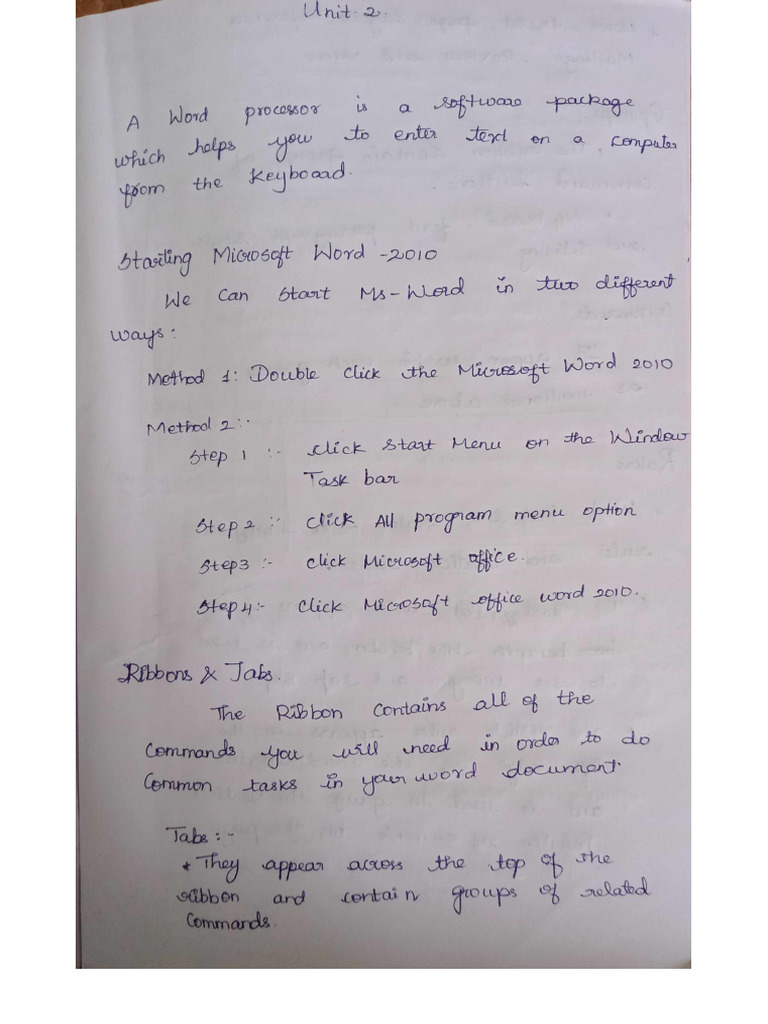 Unit-2.
A Word processor is a software package
which helps you to enter text on a computer
from the Keyboard.
Starting Microsoft Word -2010
We can start Ms-Word in two different
ways:
Method 1: Double click the Microsoft Word 2010
Method 2:-
Step 1 :- click Start Menu on the Window
Task bar
Step 2 :- click All program menu option
Step3 :- click Microsoft office.
Step4:- click Microsoft office word 2010.
Ribbons & Tabs.
The Ribbon contains all of the
Commands you will need in order to do
Common tasks in your word document
Tabs:-
* They appear across the top of the
ribbon and contain groups of related
Commands.